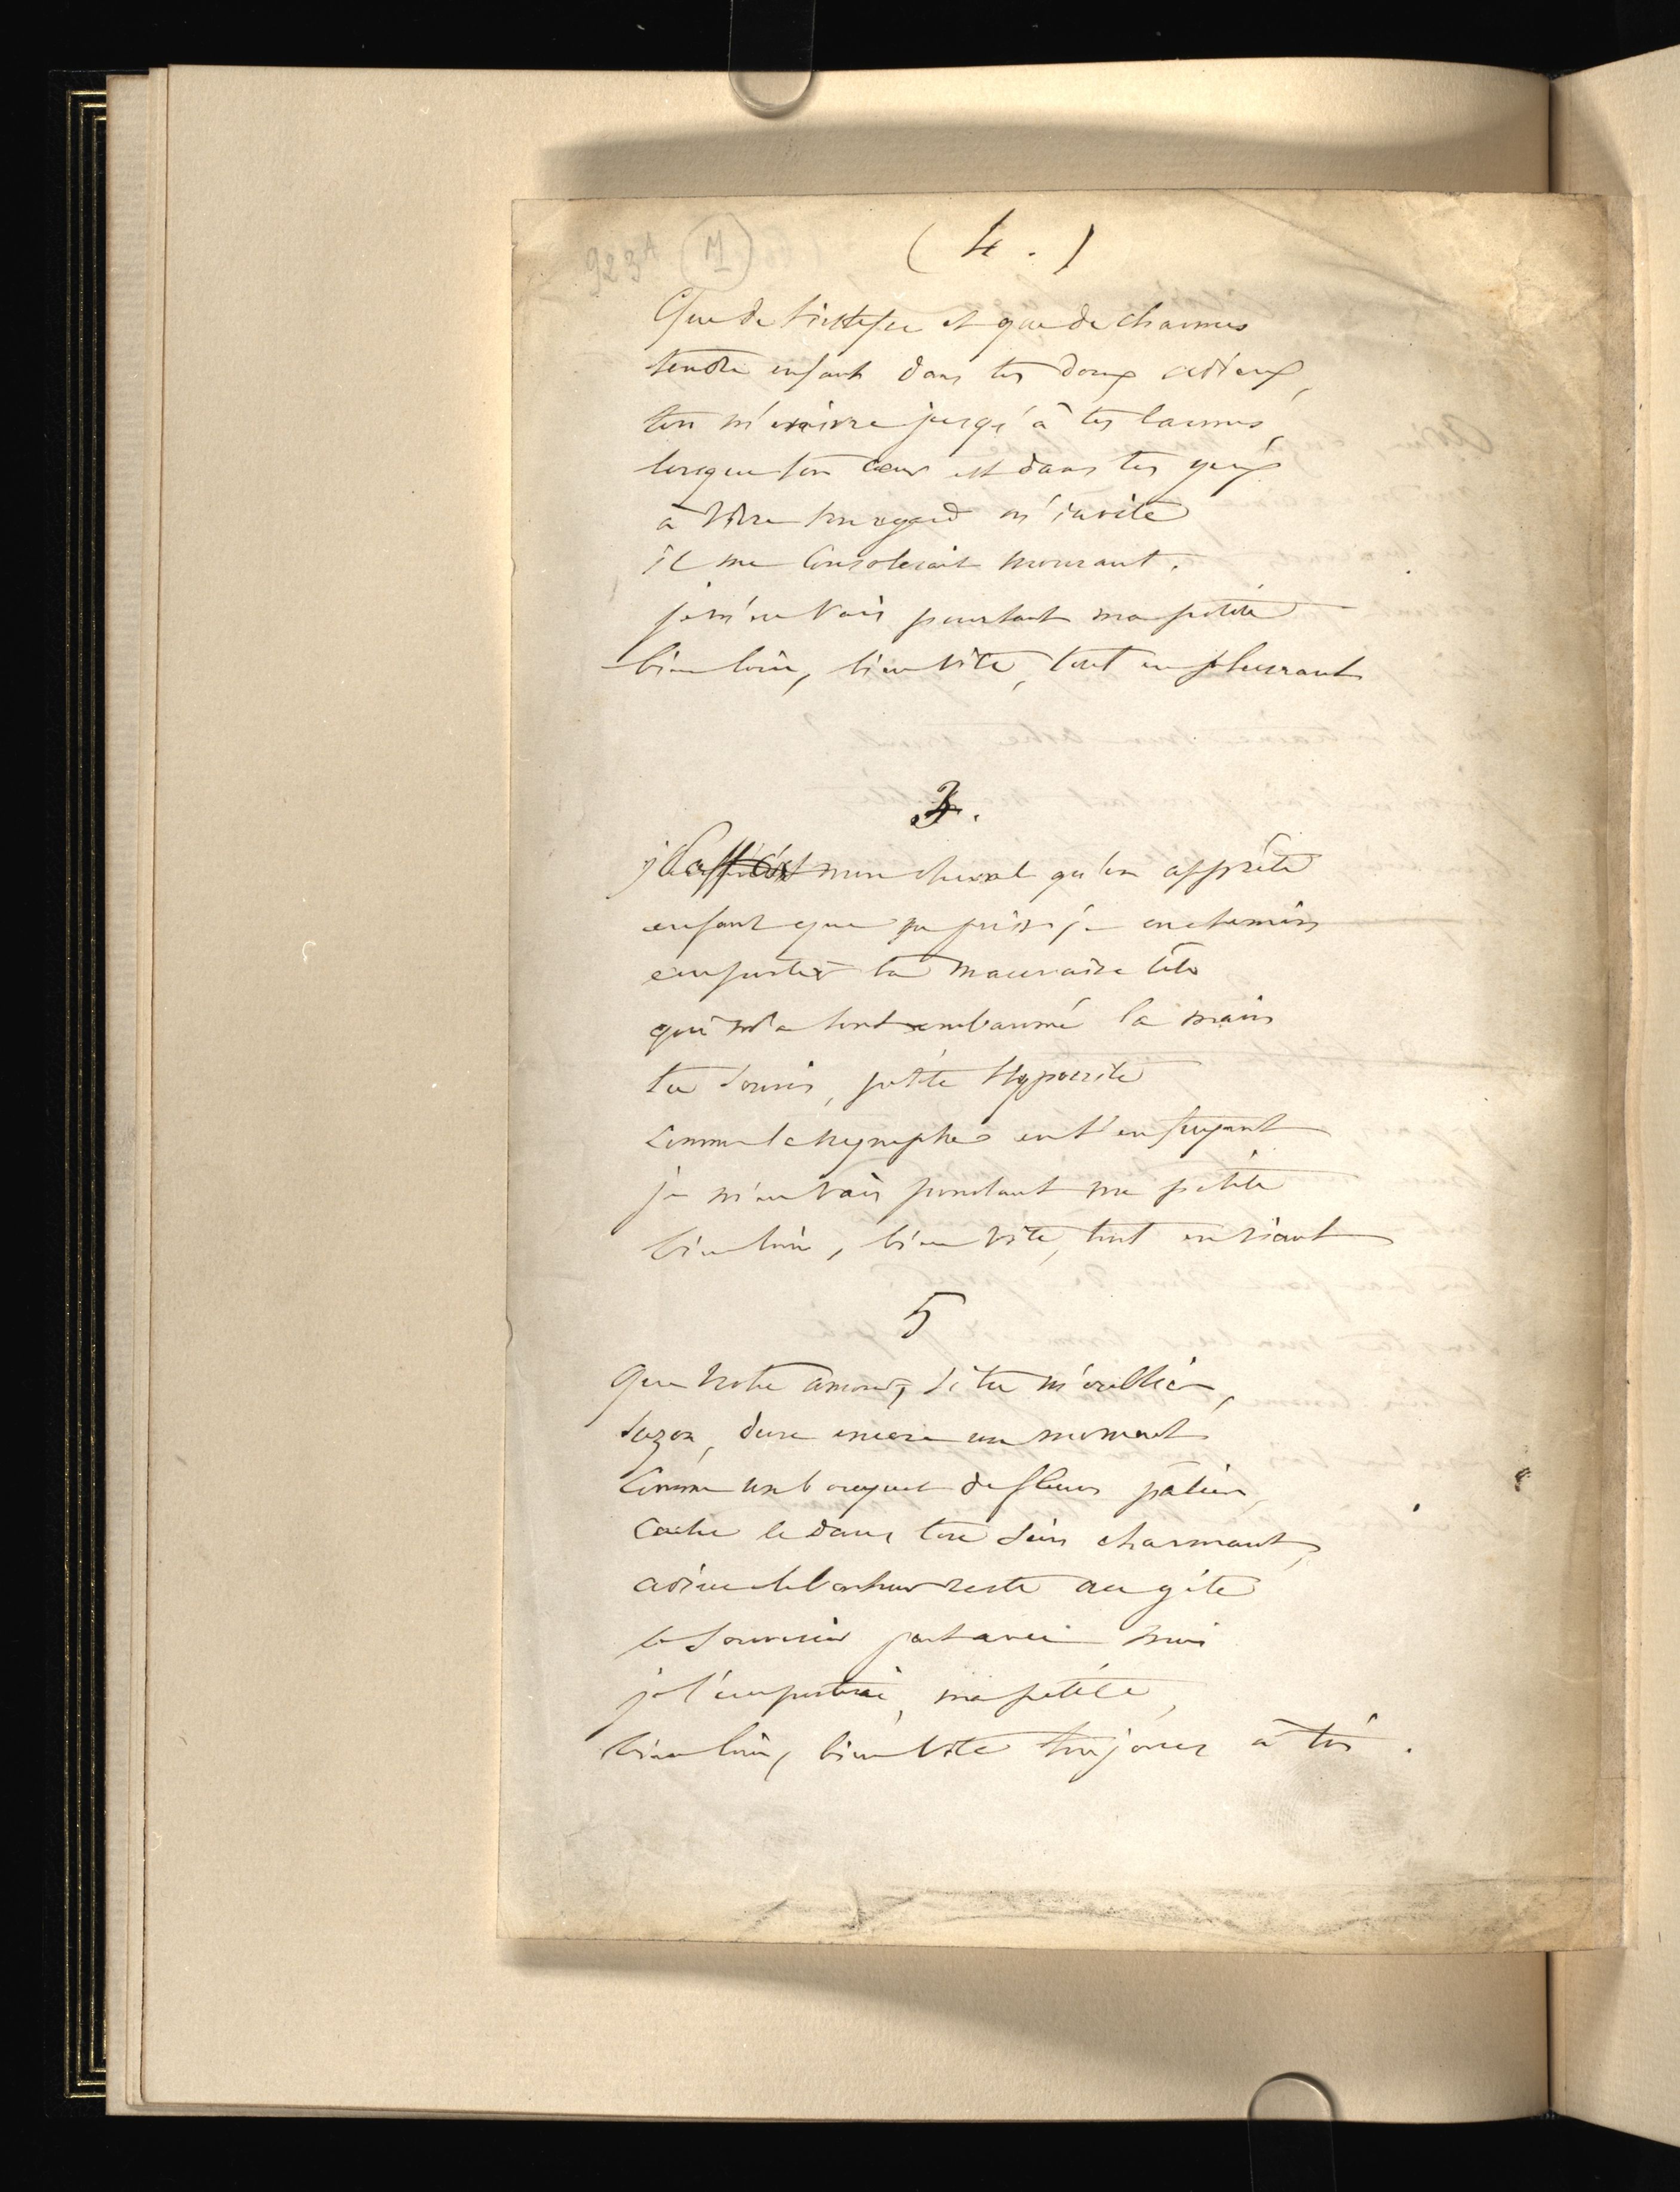 923A (M)
( 4 . )
Que de tristesse et que de charmes
tendre enfant dans tes doux adieux,
tou m'enivre jusqu'à tes larmes,
lorsque ton cœur est dans tes yeux
à vivre ton regard m'invite
il me consolerait mourant.
je m'en vais pourtant ma petite
bien loin, bien vite, tout en pleurant
3.
j' mon cheval qu'on apprête
enfant que ne puis-je en chemin
emporter ta mauvaise tête
qui m'a tout embaumé la main
tu souris, petite hypocrite
comme la nymphe en t'enfuyant
je m'en vais pourtant ma petite
bien loin, bien vite, tout en riant
5
Que notre amour, si tu m'oublies,
Suzon, dure encore un moment
comme un bouquet de fleurs pâlies,
cache le dans ton sein charmant,
adieu le bonheur reste au gîte
le souvenir part avec moi
je l'emporterai, ma petite,
bien loin, bien vite toujours à toi.